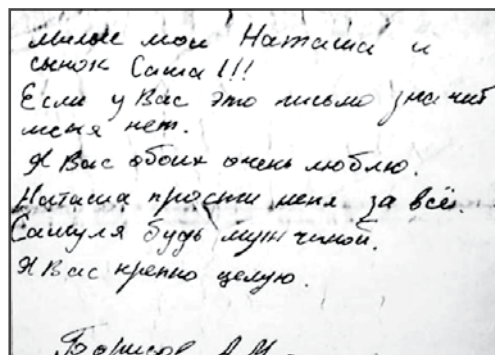 Милые мои Наташа и
сынок Саша!!!
Если у Вас это письмо значит
меня нет.
Я Вас обоих очень люблю.
Наташа прости меня за всё.
Сашуля будь мужчиной.
Я Вас крепко целую.
Борисов А.М.